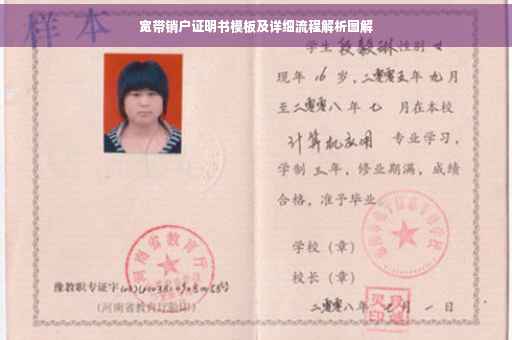 宽带销户证明书模板及详细流程解析图解
样本
学生段毅琳性别女
现年16岁，二零零五年九月
至二零零八年七月在本校
计算机应用 专业学习，
学制三年，修业期满，成绩
合格，准予毕业
学校（章）
校长（章）
二零零八年 月一日
河南省教育厅
豫教职专证字
（河南省教育厅验印）